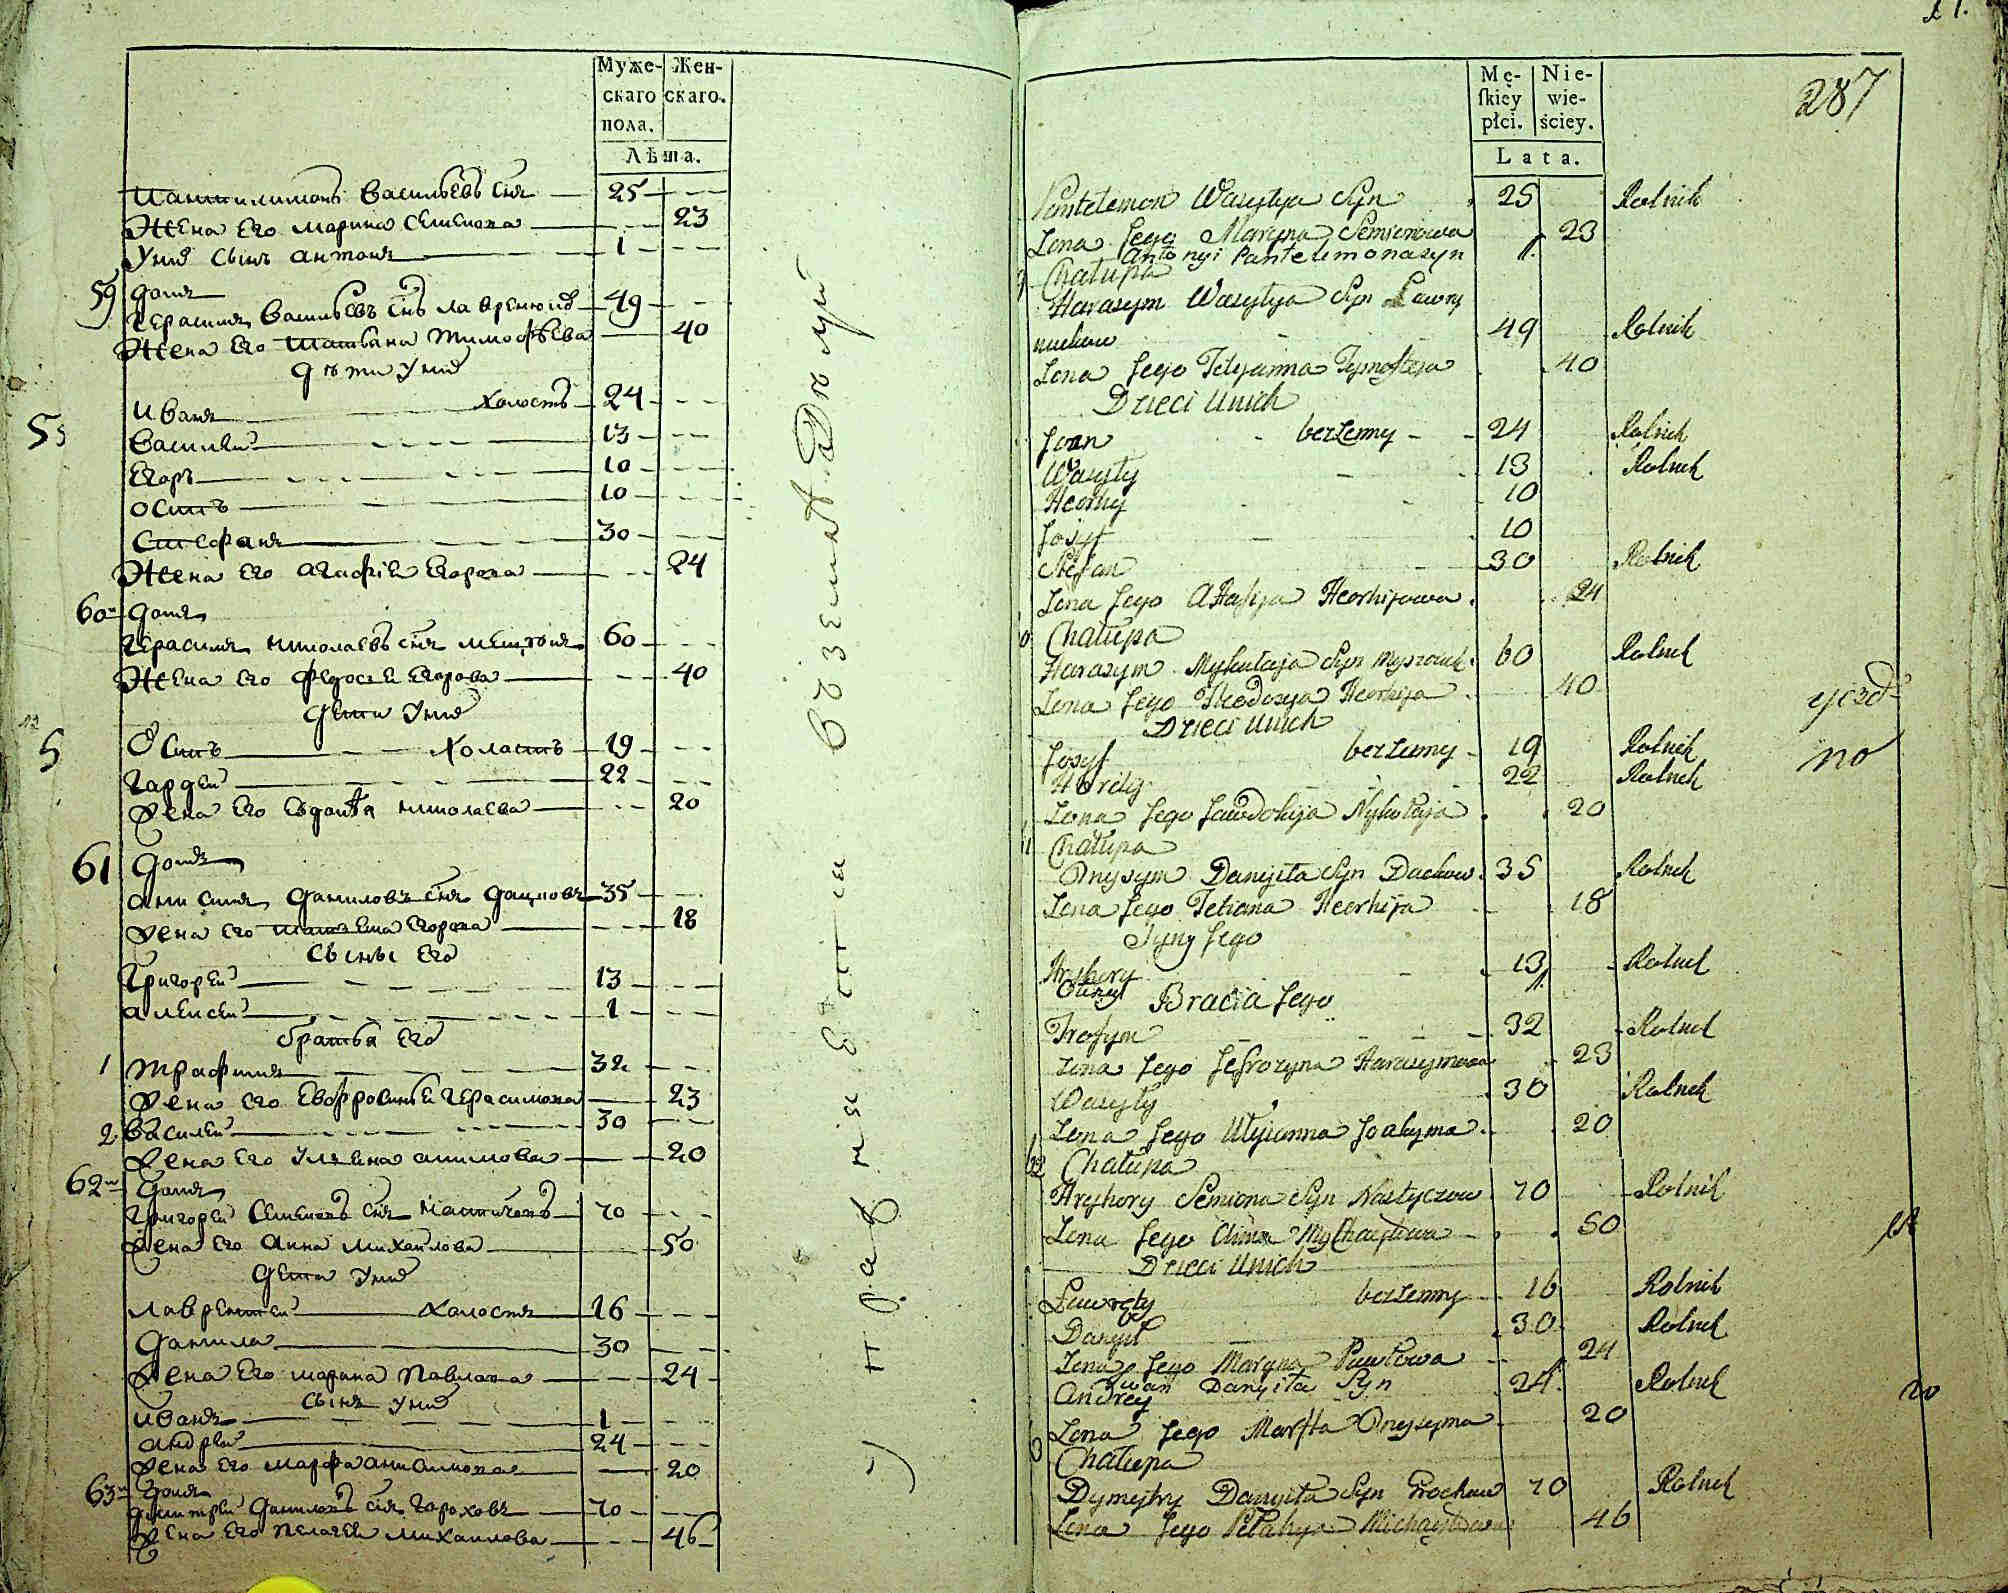 Муже- Жен-
скаго скаго.
пола.
Лѣта.
Пантилимонъ Васильевъ снъ 25
Жена Его Марина Семенова 23
У нихъ сынъ Антонъ 1
59 Домъ
Герасимъ Васильевъ снъ Лавренюкъ 49
Жена Его Татьана Тимофѣева 40
Дѣти у нихъ
Иванъ Холостъ 24
Василей 13
Егоръ 10
Осипъ 10
Стефанъ 30
Жена Его Агафія Егорова 24
60 Домъ
Герасимъ Николаевъ снъ 60
Жена Его Федосья Егорова 40
Дети у нихъ
Осипъ Холостъ 19
Гардей 22
Жена Его Николаева 20
61 Домъ
Анисимъ Даниловъ снъ Дацковъ 35
Жена Его Татьяна Егорова 18
Сыны Его
Григорей 13
Алексей 1
братья Его
1 Трафимъ 32
Жена Его Евфросинья Герасимова 23
2 Василей 30
Жена Его Ульяна Акимова 20
62 Домъ
Григорей Семеновъ снъ 70
Жена Его Анна Михайлова 50
Дети у нихъ
Лаврентей Холостъ 16
Данила 30
Жена Его Марина Павлова 24
Сынъ у нихъ
Иванъ 1
Андрей 24
Жена Его Марфа Анисимова 20
63 Домъ
Дмитрей Даниловъ снъ Гароховъ 70
Жена Его Пелагея Михайлова 46
287
Mę- Nie-
ſkiey wie-
płci. ściey.
Lata.
Pantelemon Wasylya Syn 25 Rolnik
Zona Jego Maryna Semionowa 23
Antonyi Pantelimona syn 1
Chałupa
Harasym Wasylya Syn Lawry
niukow 49 Rolnik
Zona Jego Tetyanna Tymofieja 40
Dzieci Unich
Joan bezżenny 24 Rolnik
Wasyly 13 Rolnik
Heorhy 10
Josyf 10
Stefan 30 Rolnik
Zona Jego Ahafija Heorhijowa 24
Chałupa
Harasym Mykułaja Syn 60 Rolnik
Zona Jego Theodosya Heorhija 40
Dzieci Unich
Josyf bezżenny 19 Rolnik
Hordey 22 Rolnik
Zona Jego Jewdokija Nykołaja 20
Chałupa
Onysym Danyiła Syn Dackow 35 Rolnik
Zona Jego Tetiana Heorhija 18
Syny Jego
Hryhory 13 Rolnik
Bracia Jego
Trofym 32 Rolnik
Zona Jego Jefrozyna Harasymowa 23
Wasyly 30 Rolnik
Zona Jego Ulyianna Joakyma 20
62 Chałupa
Hryhory Semiona Syn Nastyczow 70 Rolnik
Zona Jego Anna Mychayłowa 50
Dzieci Unich
Ławręty bezżenny 16 Rolnik
Danyił 30 Rolnik
Zona Jego Maryna Pawłowa 24
Iwan Danyiła Syn
Andrey 24 Rolnik
Zona Jego Marfta Onysyma 20
Chałupa
Dymytry Danyiła Syn Grochow 70 Rolnik
Zona Jego Pełahya Michayłowa 46